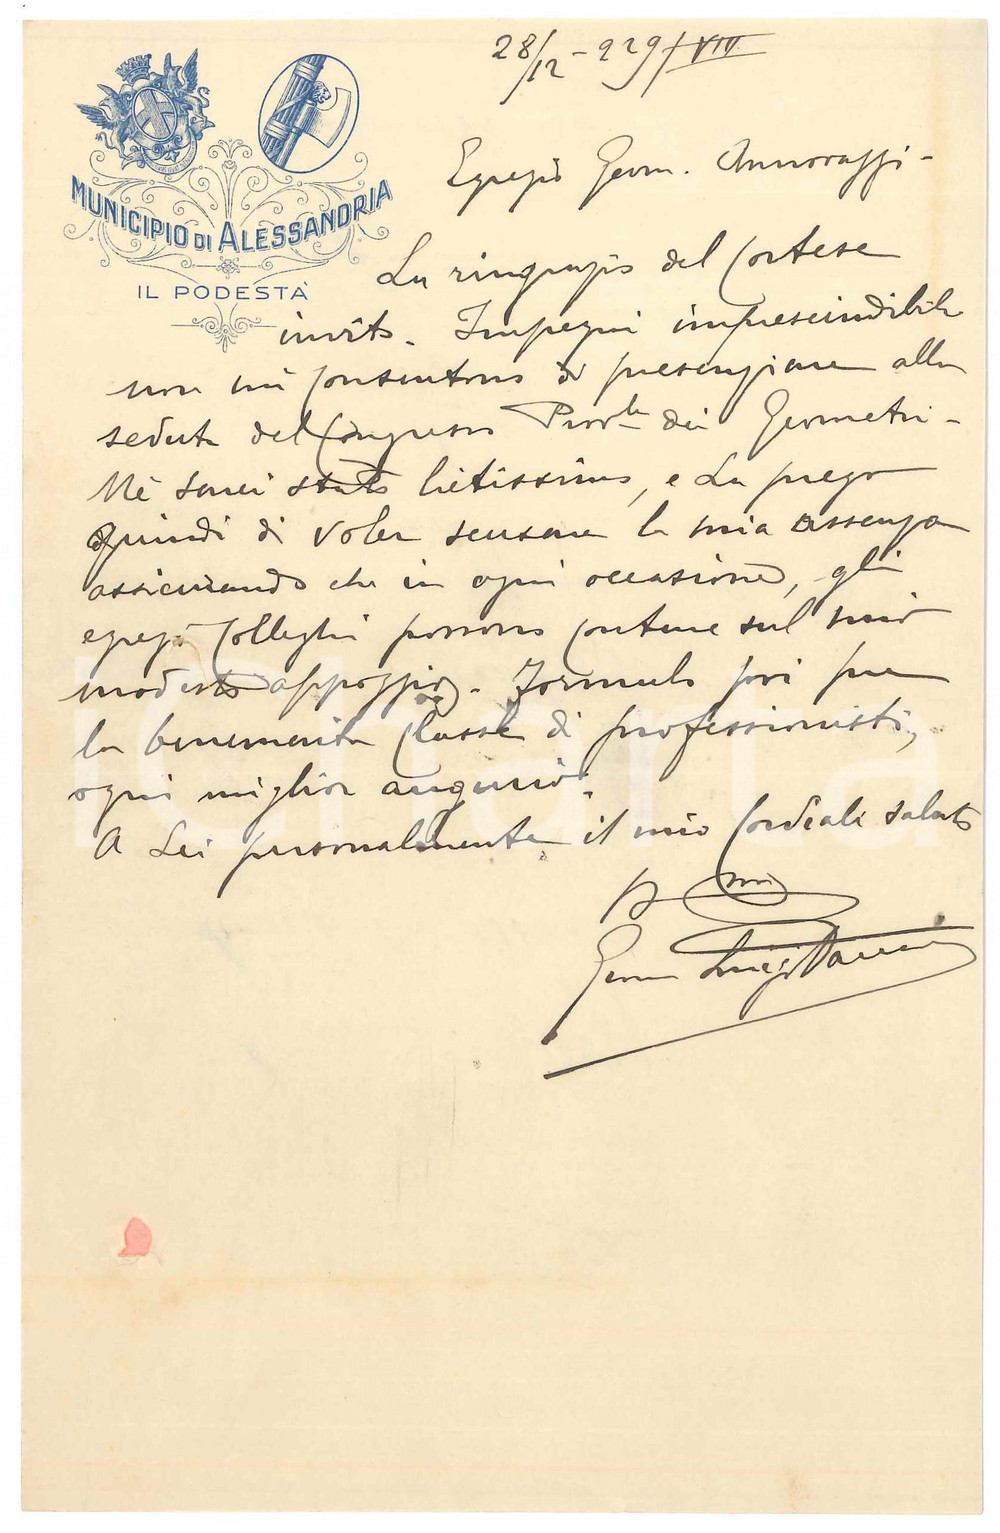 28/12-929/VIII
MUNICIPIO DI ALESSANDRIA
IL PODESTÀ
Egregio Geom.
La ringrazio del cortese
invito. Impegni imprescindibili
non mi consentono di presenziare alla
seduta del Congresso Prov.le dei Geometri -
Ne sarei stato lietissimo, e La prego
quindi di voler scusare la mia assenza
assicurando che in ogni occasione, gli
egregi Colleghi possono contare sul mio
modesto appoggio. Formulo poi per
la benemerita Classe di professionisti,
ogni miglior augurio.
A Lei personalmente il mio cordiale saluto
Geom Luigi